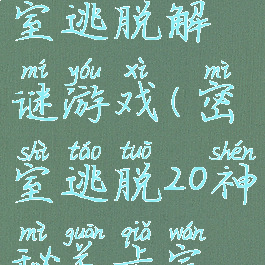 室逃脱解
mí yóu xì mì
谜游戏(密
shì táo tuō shén
室逃脱20神
mì guān qiǎ wán